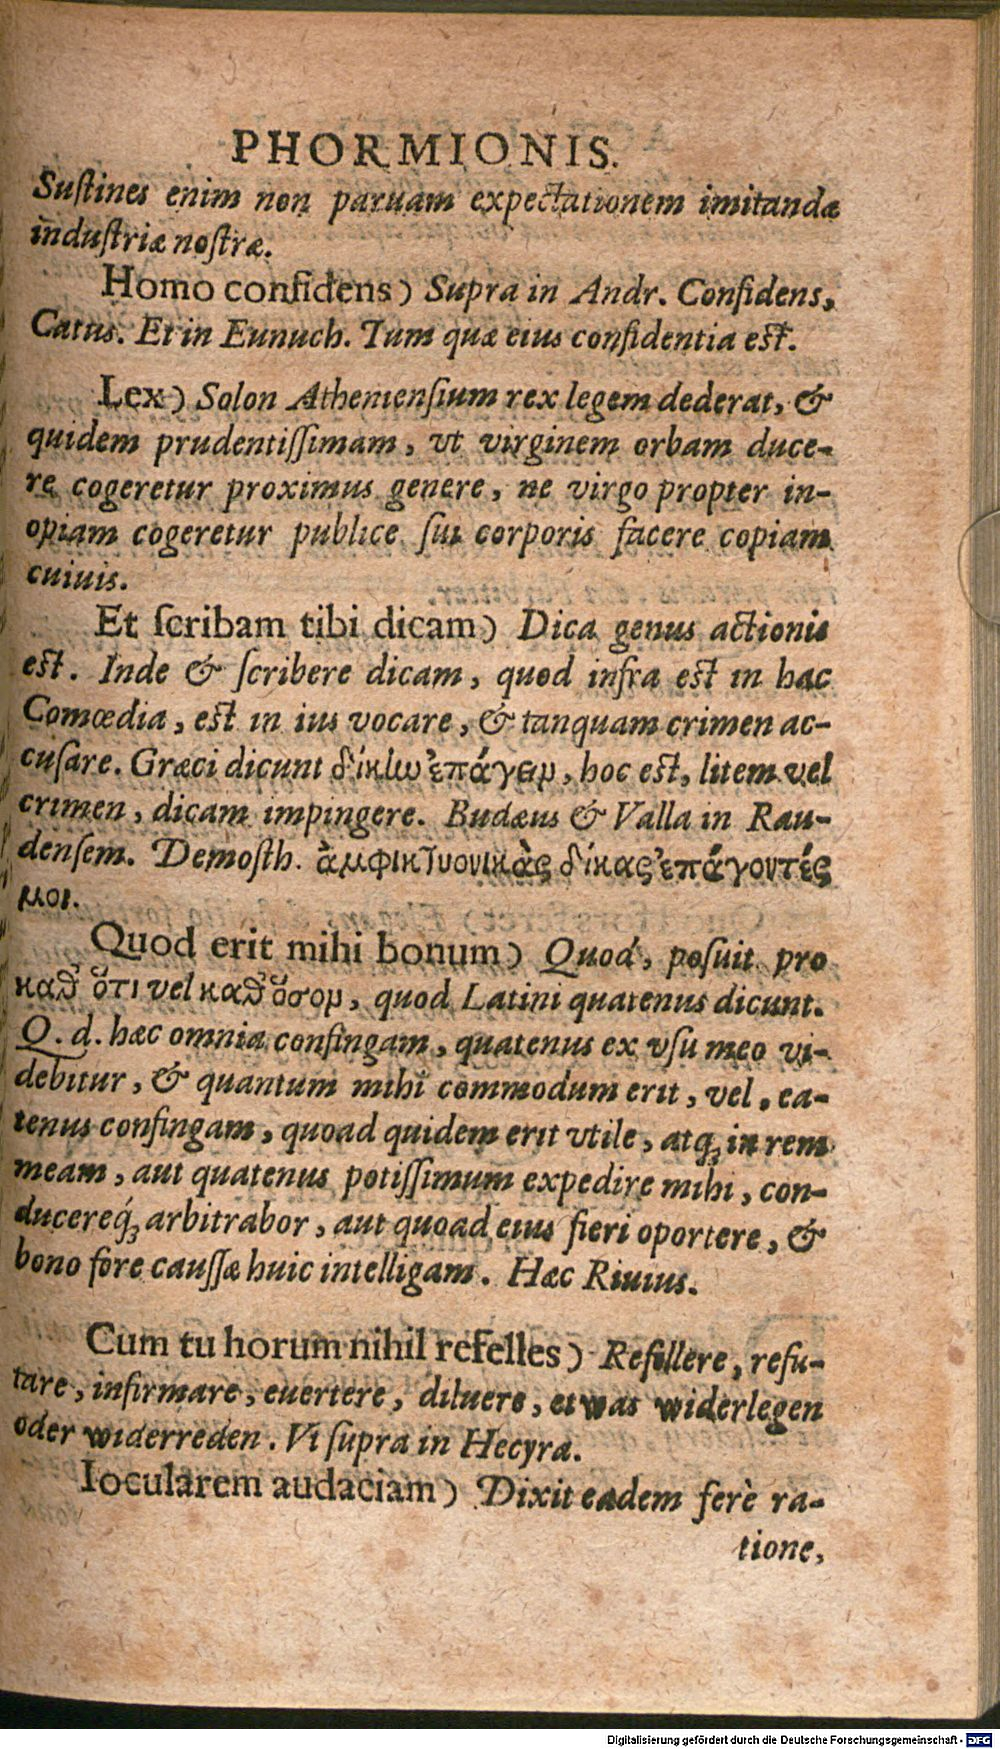 PHORMIONIS.
Suſtines enim non paruam expectationem imitandæ
induſtriæ noſtræ.
Homo confidens) Supra in Andr. Confidens,
Catus. Et in Eunuch. Tum quæ eius confidentia eſt.
Lex) Solon Athenienſium rex legem dederat, &
quidem prudentiſſimam, vt virginem orbam duce-
re cogeretur proximus genere, ne virgo propter in-
opiam cogeretur publice ſui corporis facere copiam
cuiuis.
Et ſcribam tibi dicam) Dica genus actionis
eſt. Inde & ſcribere dicam, quod infra eſt in hac
Comœdia, eſt in ius vocare, & tanquam crimen ac-
cuſare. Græci dicunt δίκlω ἐπάγειν, hoc eſt, litem vel
crimen, dicam impingere. Budæus & Valla in Rau-
denſem. Demoſth. ἀμφικτυονικὰς δίκας ἐπάγοντές
μοι.
Quod erit mihi bonum) Quod, poſuit pro
καθ' ὅτι vel καθ' ὅσον, quod Latini quatenus dicunt.
Q. d. hæc omnia confingam, quatenus ex vſu meo vi-
debitur, & quantum mihi commodum erit, vel, ea-
tenus confingam, quoad quidem erit vtile, atq; in rem
meam, aut quatenus potiſſimum expedire mihi, con-
ducereq́; arbitrabor, aut quoad eius fieri oportere, &
bono fore cauſſæ huic intelligam. Hæc Riuius.
Cum tu horum nihil refelles) Refellere, refu-
tare, infirmare, euertere, diluere, etwas widerlegen
oder widerreden. Vi ſupra in Hecyra.
Iocularem audaciam) Dixit eadem ferè ra-
tione,
Digitalisierung gefördert durch die Deutsche Forschungsgemeinschaft - DFG